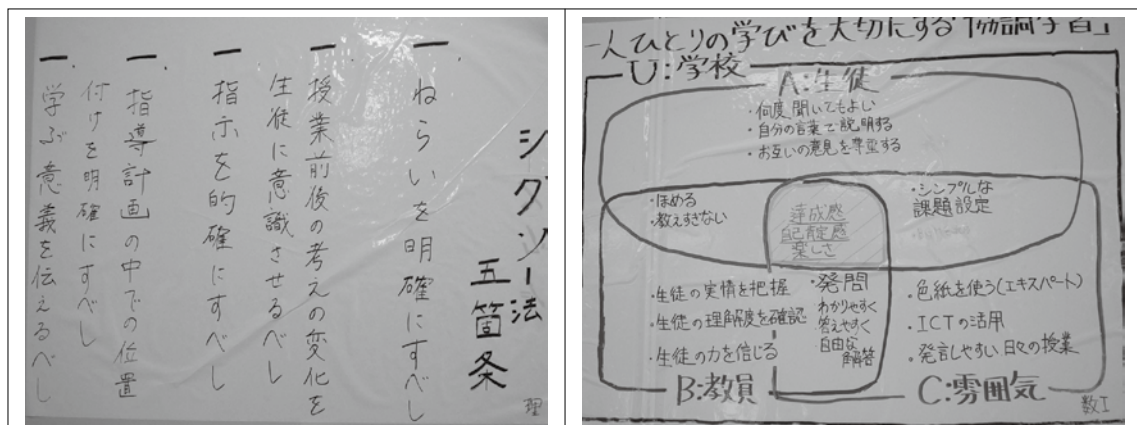 ジグソー法
五箇条
一、ねらいを明確にすべし
一、授業前後の考えの変化を
生徒に意識させるべし
一、指示を的確にすべし
一、指導計画の中での位置
付けを明確にすべし
一、学ぶ意義を伝えるべし
理
一人ひとりの学びを大切にする「協調学習」
U:学校
A:生徒
・何度聞いてもよい
・自分の言葉で説明する
・お互いの意見を尊重する
・ほめる
・教えすぎない
達成感
自己肯定感
楽しさ
・シンプルな
課題設定
・生徒の実情を把握
・生徒の理解度を確認
・生徒の力を信じる
・発問
わかりやすく
答えやすく
自由な
解答
・色紙を使う(エキスパート)
・ICTの活用
・発言しやすい日々の授業
B:教員
C:雰囲気
数I